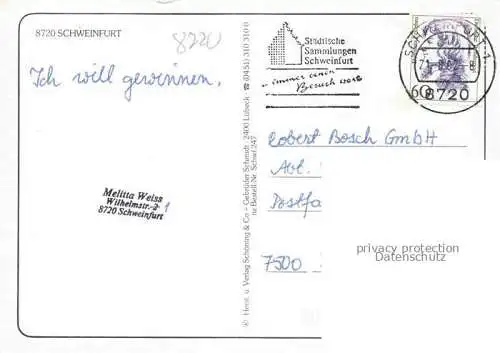 8720 SCHWEINFURT
8720
Ich will gewinnen.
Melitta Weiss
Wilhelmstr. 2 1
8720 Schweinfurt
Herst. u. Verlag Schöning & Co - Gebrüder Schmidt · 2400 Lübeck · ☎ (0451) 310 310 0
Bestell-Nr. Schwf. 247
Städtische
Sammlungen
Schweinfurt
immer einen
Besuch wert
SCHWEINFURT 1
8720
60
Robert Bosch GmbH
Abt.
Postfa
7500
privacy protection
Datenschutz